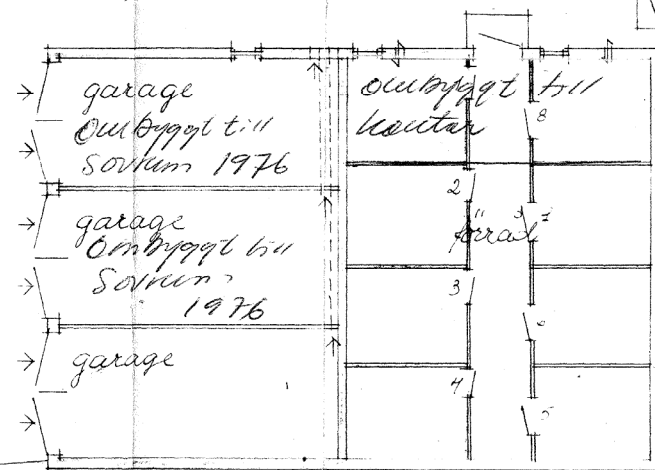 garage
Ombyggt till
Sovrum 1976
garage
Ombyggt till
Sovrum
1976
garage
Ombyggt till
Kontor
8
2
förråd
7
3
6
4
5